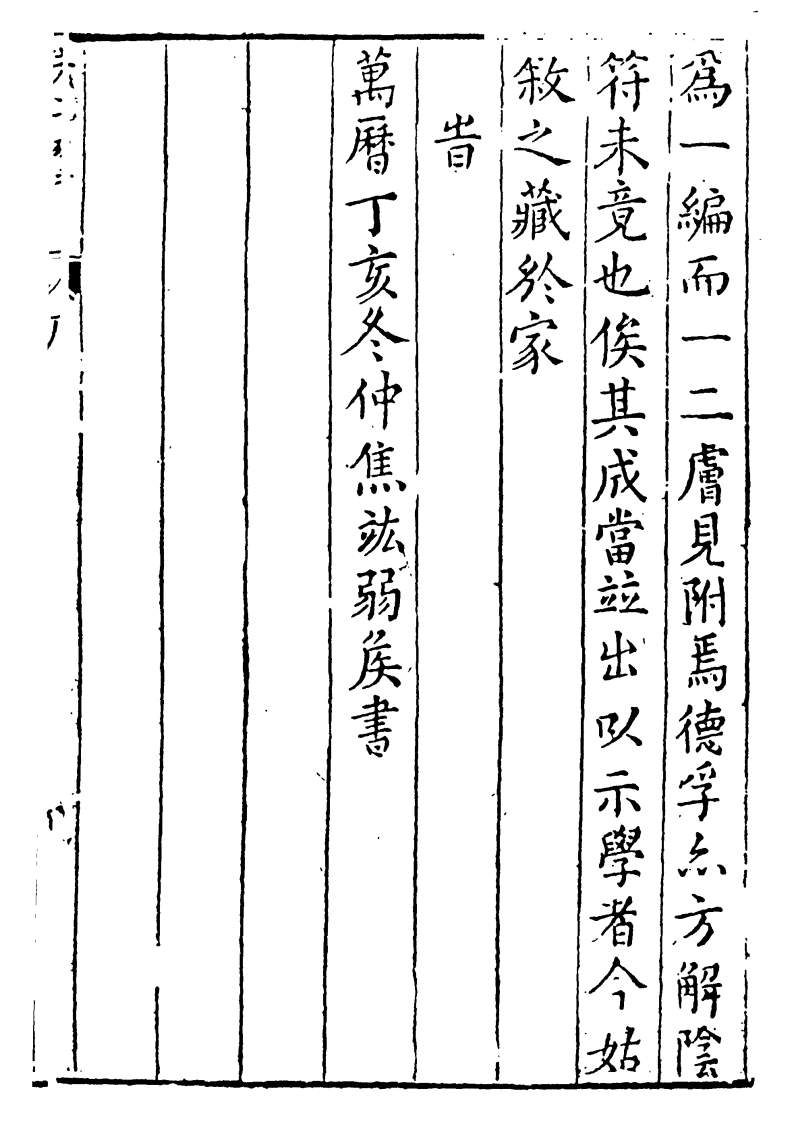 爲一編而一二膚見附焉德孚亦方解陰
符未竟也俟其成當竝出以示學者今姑
敘之藏於家
旹
萬曆丁亥冬仲焦竑弱侯書